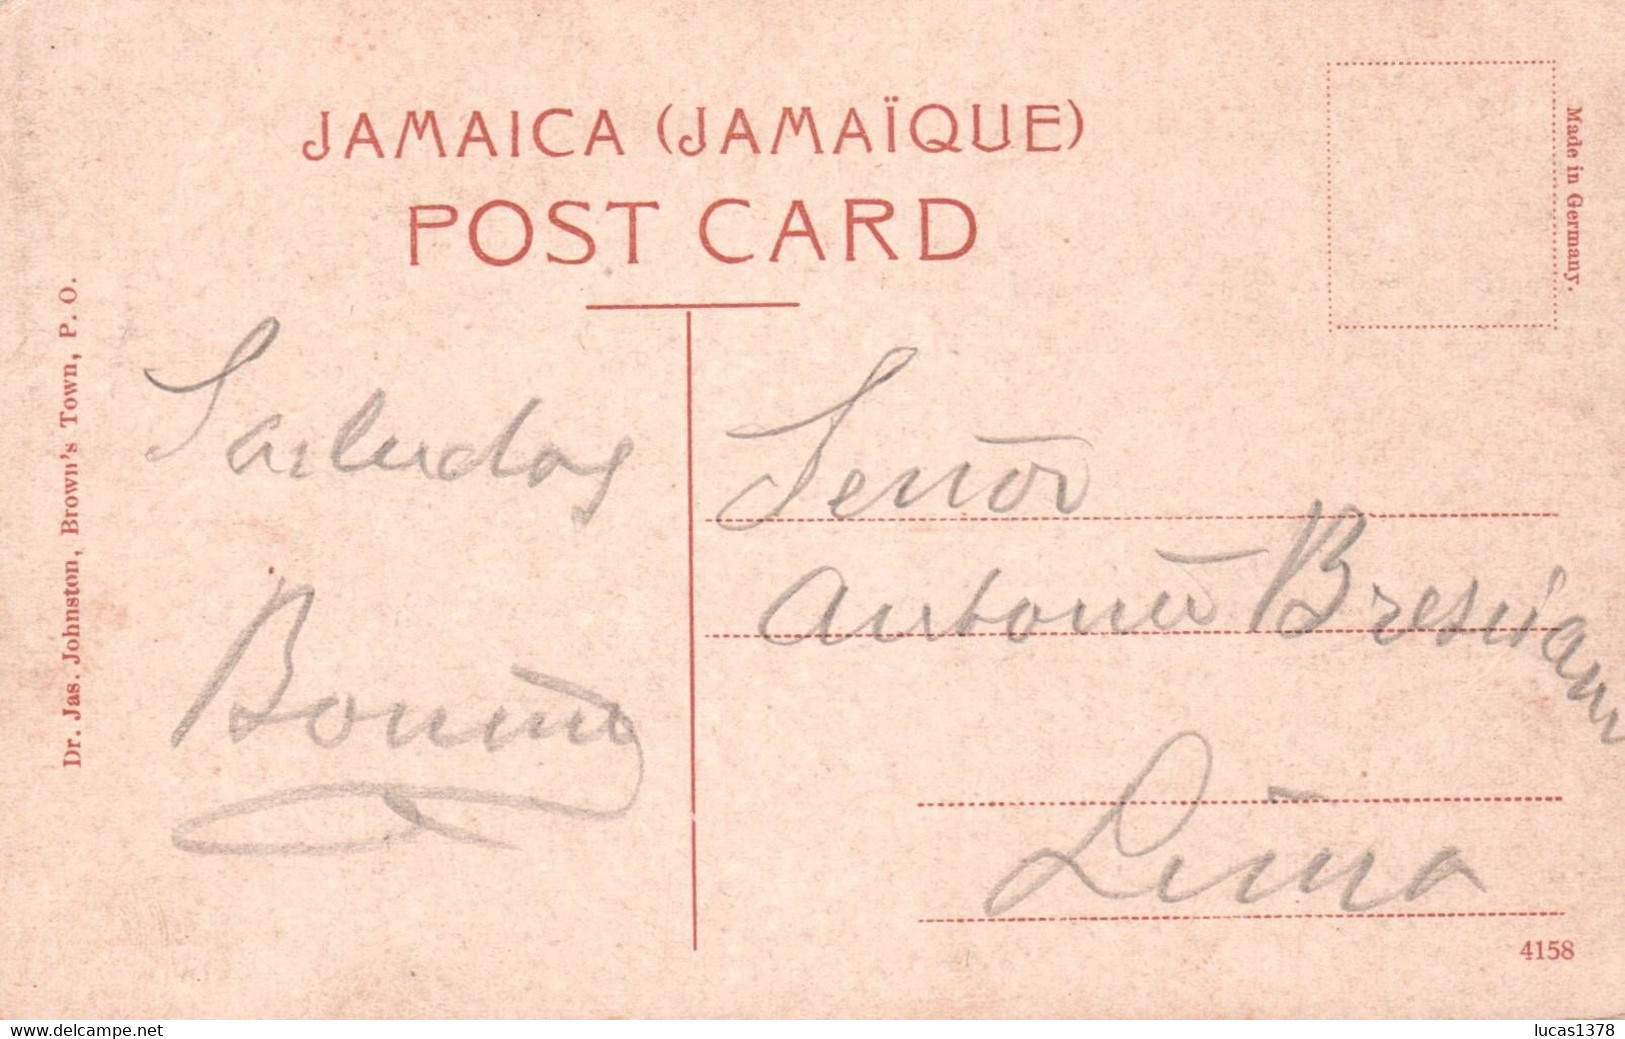 JAMAICA (JAMAÏQUE)
POST CARD
Made in Germany.
Dr. Jas. Johnston, Brown's Town, P. O.
Saludos
Señor
Antonio Bresciani
Lima
4158
www.delcampe.net
lucas1378